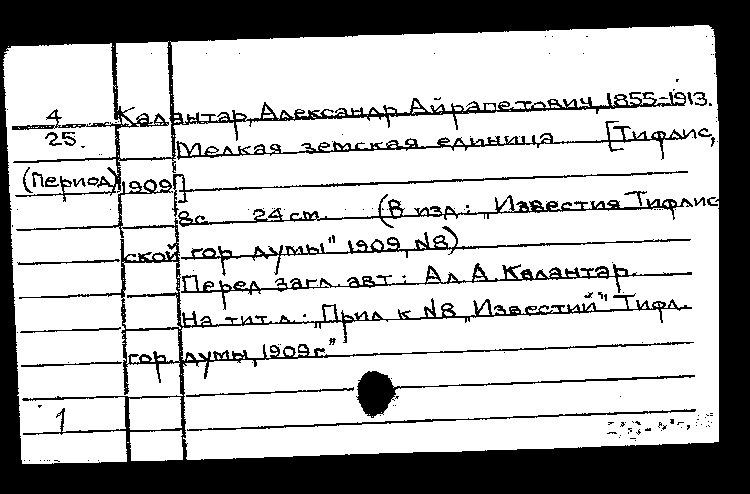 4 Калантар, Александр Айрапетович, 1855-1913.
25. Мелкая земская единица [Тифлис,
(Период) 1909]
8с 24 ст. (В изд.: „Известия Тифлис
ской гор. думы" 1909, N8)
Перед загл. авт.: Ал. А. Калантар.
На тит. л.: „Прил. к N8 „Известий" Тифл.
гор. думы, 1909 г."
1